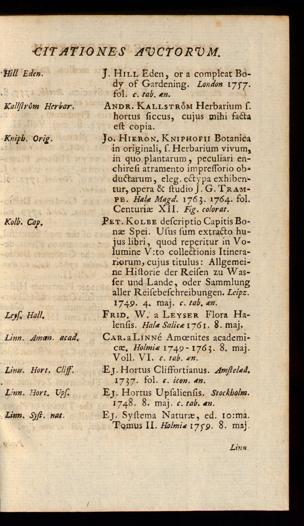 CITATIONES AVCTORVM.
Hill Eden. J. HILL Eden, or a compleat Bo-
dy of Gardening. London 1757.
fol. c. tab. æn.
Kallström Herbar. ANDR. KALLSTRÖM Herbarium ſ.
hortus ſiccus, cujus mihi facta
eſt copia.
Kniph. Orig. JO. HIERON. KNIPHOFII Botanica
in originali, ſ. Herbarium vivum,
in quo plantarum, peculiari en-
chireſi atramento impreſſorio ob-
ductarum, eleg. ectypa exhiben-
tur, opera & ſtudio J. G. TRAM-
PE. Halæ Magd. 1763. 1764. fol.
Centuriæ XII. Fig. colorat.
Kolb. Cap. PET. KOLBE deſcriptio Capitis Bo-
næ Spei. Uſus ſum extracto hu-
jus libri, quod reperitur in Vo-
lumine V:to collectionis Itinera-
riorum, cujus titulus: Allgemei-
ne Hiſtorie der Reiſen zu Waſ-
ſer und Lande, oder Sammlung
aller Reiſebeſchreibungen. Leipz.
1749. 4. maj. c. tab. æn.
Leyſ. Hall. FRID. W. a LEYSER Flora Ha-
lenſis. Halæ Salicæ 1761. 8. maj.
Linn. Amœn. acad. CAR. a LINNÉ Amœnites academi-
cæ. Holmiæ 1749-1763. 8. maj.
Voll. VI. c. tab. æn.
Linn. Hort. Cliff. EJ. Hortus Cliffortianus. Amſtelæd.
1737. fol. c. icon. æn.
Linn. Hort. Upſ. EJ. Hortus Upſalienſis. Stockholm.
1748. 8. maj. c. tab. æn.
Linn. Syſt. nat. EJ. Syſtema Naturæ, ed. 10:ma.
Tomus II. Holmiæ 1759. 8. maj.
Linn.